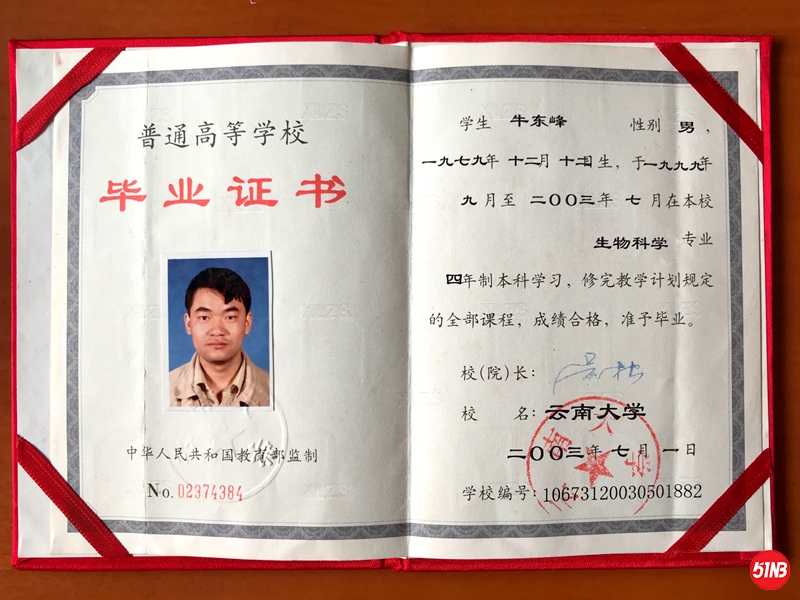 普通高等学校
毕业证书
中华人民共和国教育部监制
No. 02374384
学生 牛东峰 性别 男，
一九七九年 十二月 十二日生，于一九九九年
九月至 二〇〇三年 七月在本校
生物科学 专业
四年制本科学习，修完教学计划规定
的全部课程，成绩合格，准予毕业。
校(院)长：
校 名：云南大学
二〇〇三年 七月 一日
学校编号：10673120030501882
51NB